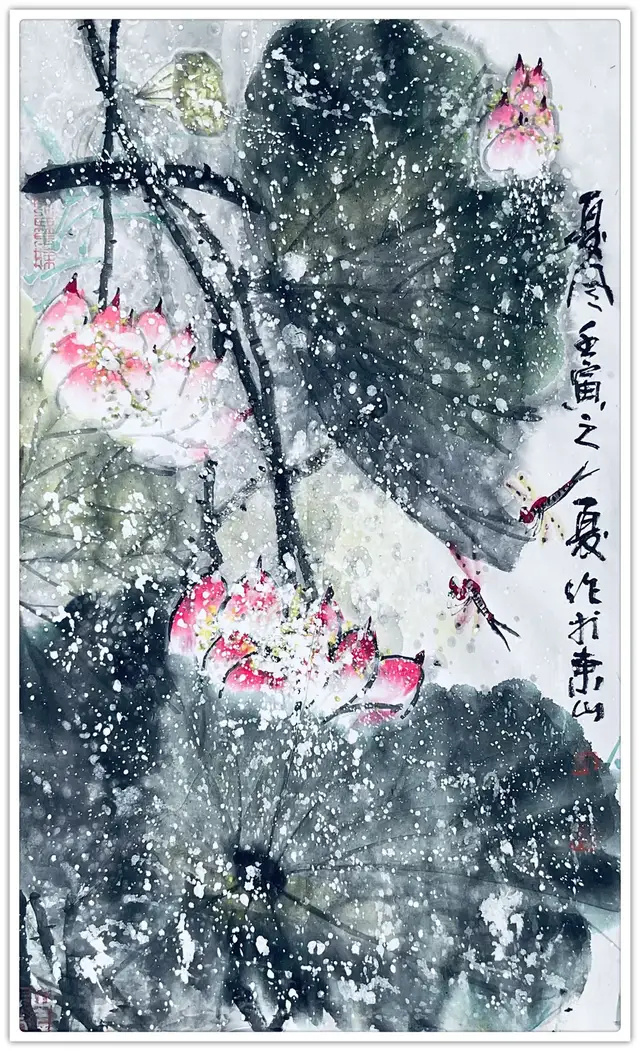 夏风 壬寅之夏作於东山